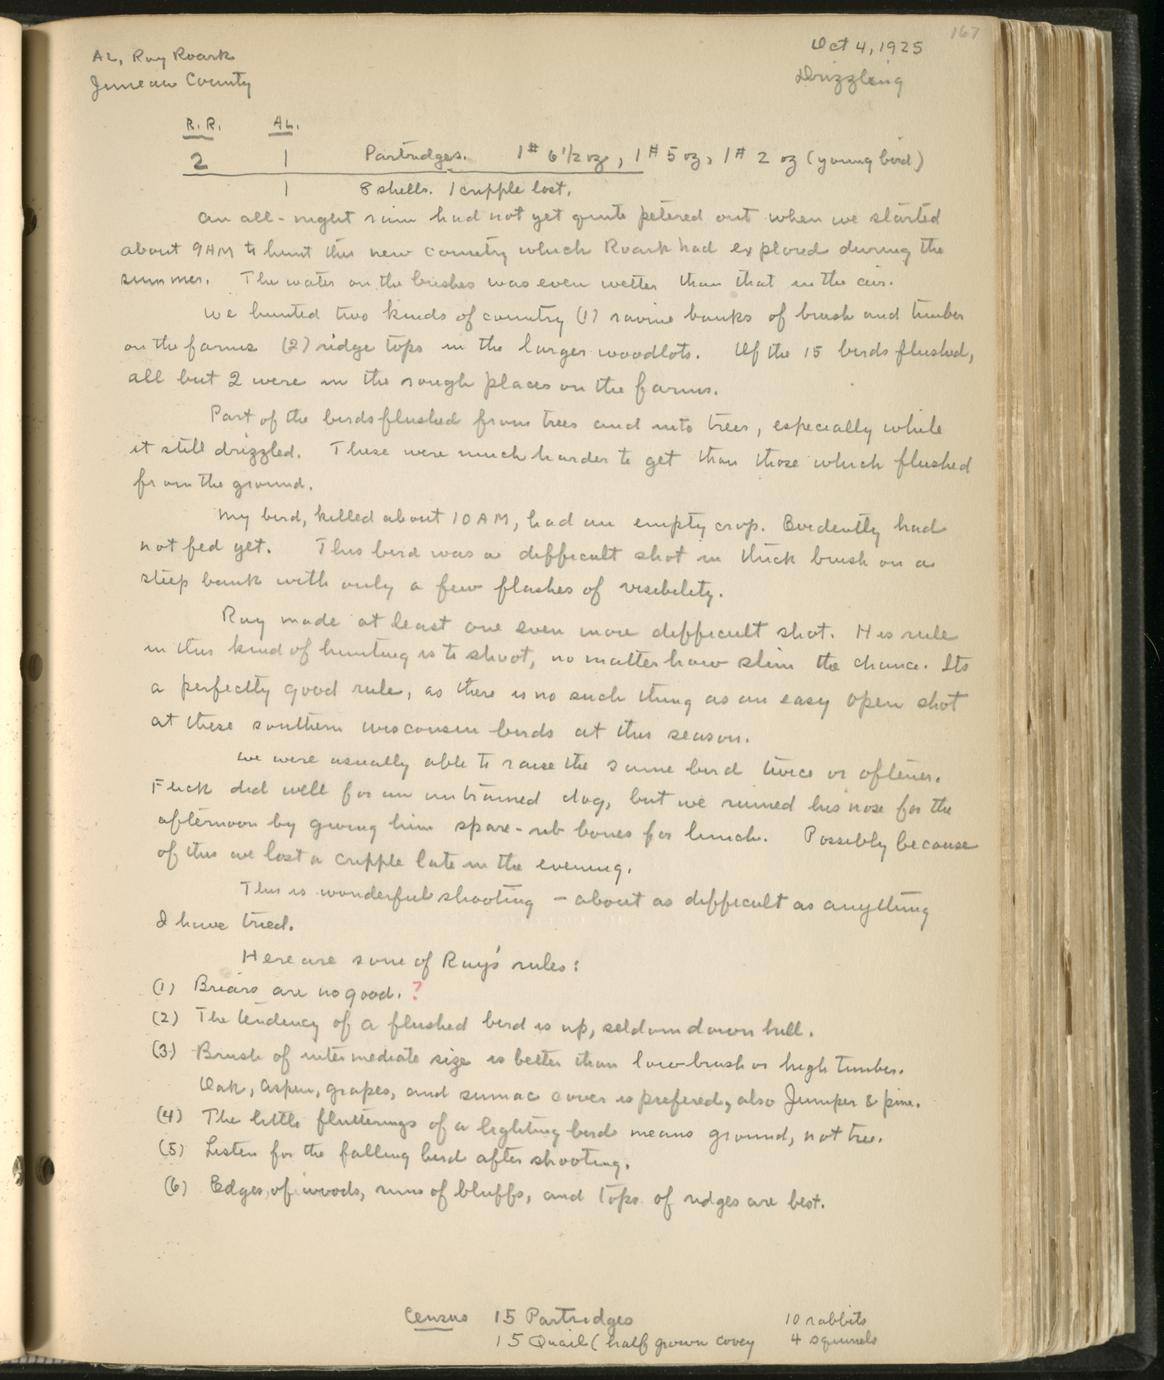 167
AL, Ray Roark
Oct 4, 1925
Juneau County
Drizzling
R.R. AL.
2 1 Partridges. 1# 6 1/2 oz, 1# 5 oz, 1# 2 oz (young bird)
1 8 shells. 1 cripple lost.
An all-night rain had not yet quite petered out when we started
about 9 AM to hunt this new country which Roark had explored during the
summer. The water on the bushes was even wetter than that in the air.
We hunted two kinds of country (1) ravine banks of brush and timber
on the farms (2) ridge tops in the larger woodlots. Of the 15 birds flushed,
all but 2 were in the rough places on the farms.
Part of the birds flushed from trees and into trees, especially while
it still drizzled. These were much harder to get than those which flushed
from the ground.
My bird, killed about 10 AM, had an empty crop. Evidently had
not fed yet. This bird was a difficult shot in thick brush on a
steep bank with only a few flashes of visibility.
Ray made at least one even more difficult shot. His rule
in this kind of hunting is to shoot, no matter how slim the chance. Its
a perfectly good rule, as there is no such thing as an easy open shot
at these southern Wisconsin birds at this season.
We were usually able to raise the same bird twice or oftener.
Flick did well for an untrained dog, but we ruined his nose for the
afternoon by giving him spare-rib bones for lunch. Possibly because
of this we lost a cripple late in the evening.
This is wonderful shooting – about as difficult as anything
I have tried.
Here are some of Ray's rules:
(1) Briars are no good. ?
(2) The tendency of a flushed bird is up, seldom down hill.
(3) Brush of intermediate size is better than low brush or high timber.
Oak, aspen, grapes, and sumac cover is prefered, also Juniper & pine.
(4) The little flutterings of a lighting bird means ground, not tree.
(5) Listen for the falling bird after shooting.
(6) Edges of woods, rims of bluffs, and tops of ridges are best.
Census 15 Partridges 10 rabbits
15 Quail (half grown covey 4 squirrels